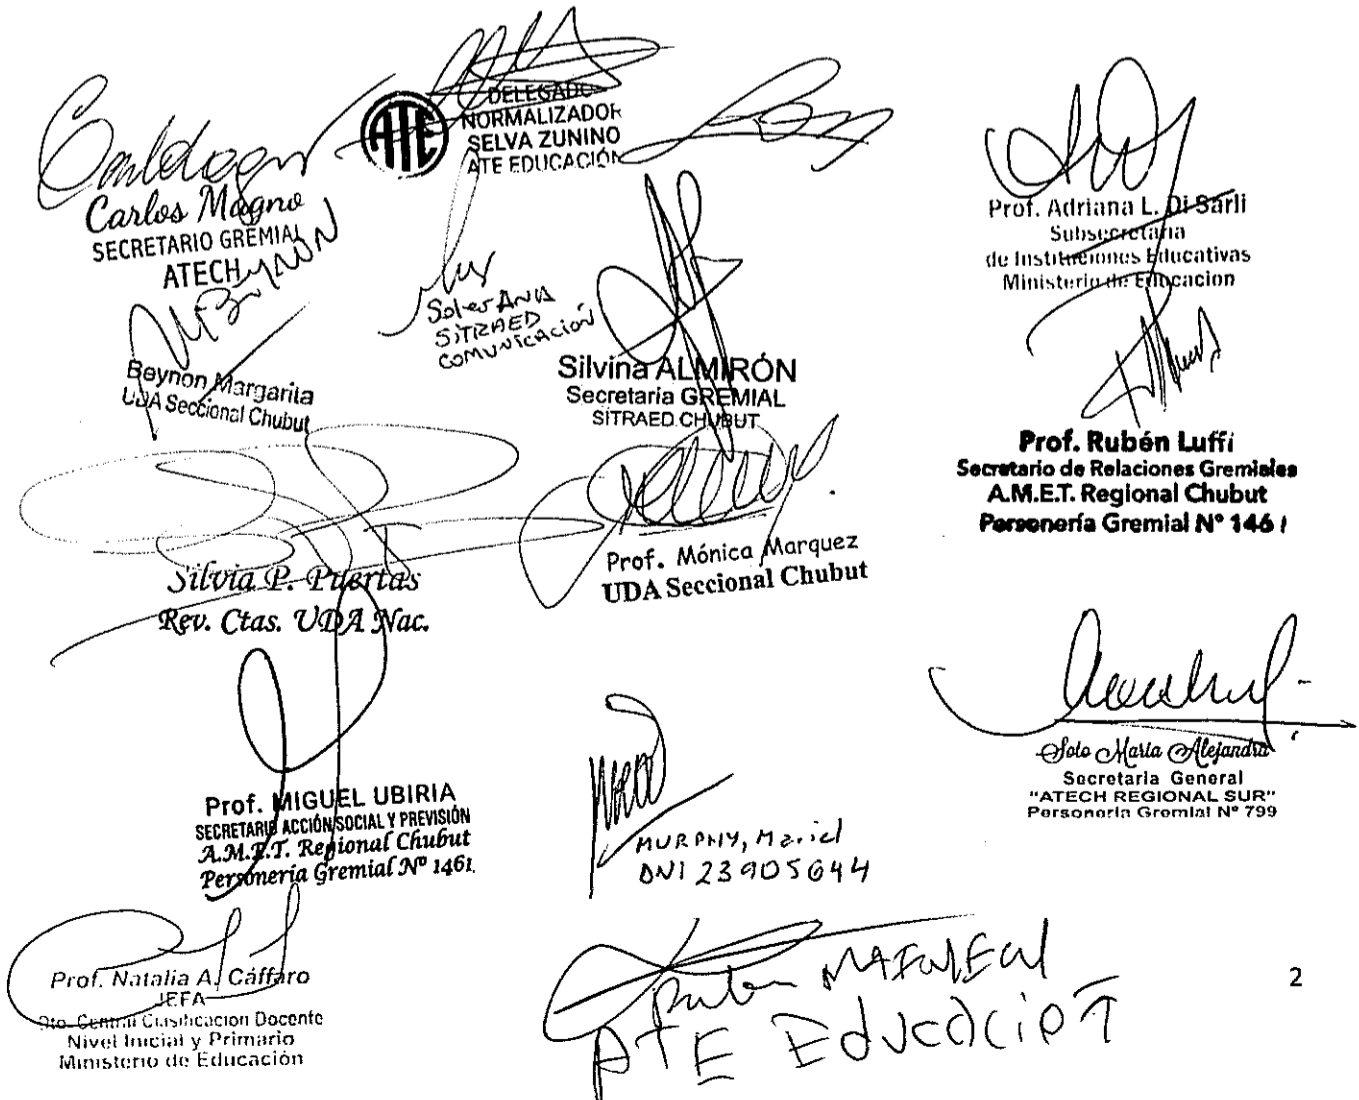 Carlos Magno
SECRETARIO GREMIAL
ATECH
ATE
DELEGADO
NORMALIZADOR
SELVA ZUNINO
ATE EDUCACIÓN
Prof. Adriana L. Di Sarli
Subsecretaria
de Instituciones Educativas
Ministerio de Educacion
Beynon Margarita
UDA Seccional Chubut
SITRAED
COMUNICACIÓN
Silvina ALMIRÓN
Secretaria GREMIAL
SITRAED CHUBUT
Prof. Rubén Luffi
Secretario de Relaciones Gremiales
A.M.E.T. Regional Chubut
Personería Gremial Nº 1461
Silvia P. Puertas
Rev. Ctas. UDA Nac.
Prof. Mónica Marquez
UDA Seccional Chubut
Soto María Alejandra
Secretaria General
"ATECH REGIONAL SUR"
Personería Gremial Nº 799
Prof. MIGUEL UBIRIA
SECRETARIO ACCIÓN SOCIAL Y PREVISIÓN
A.M.E.T. Regional Chubut
Personería Gremial Nº 1461
MURPHY, Mariel
DNI 23905644
Prof. Natalia A. Cáffaro
JEFA
Dto. Central Clasificacion Docente
Nivel Inicial y Primario
Ministerio de Educación
ATE Educación
2